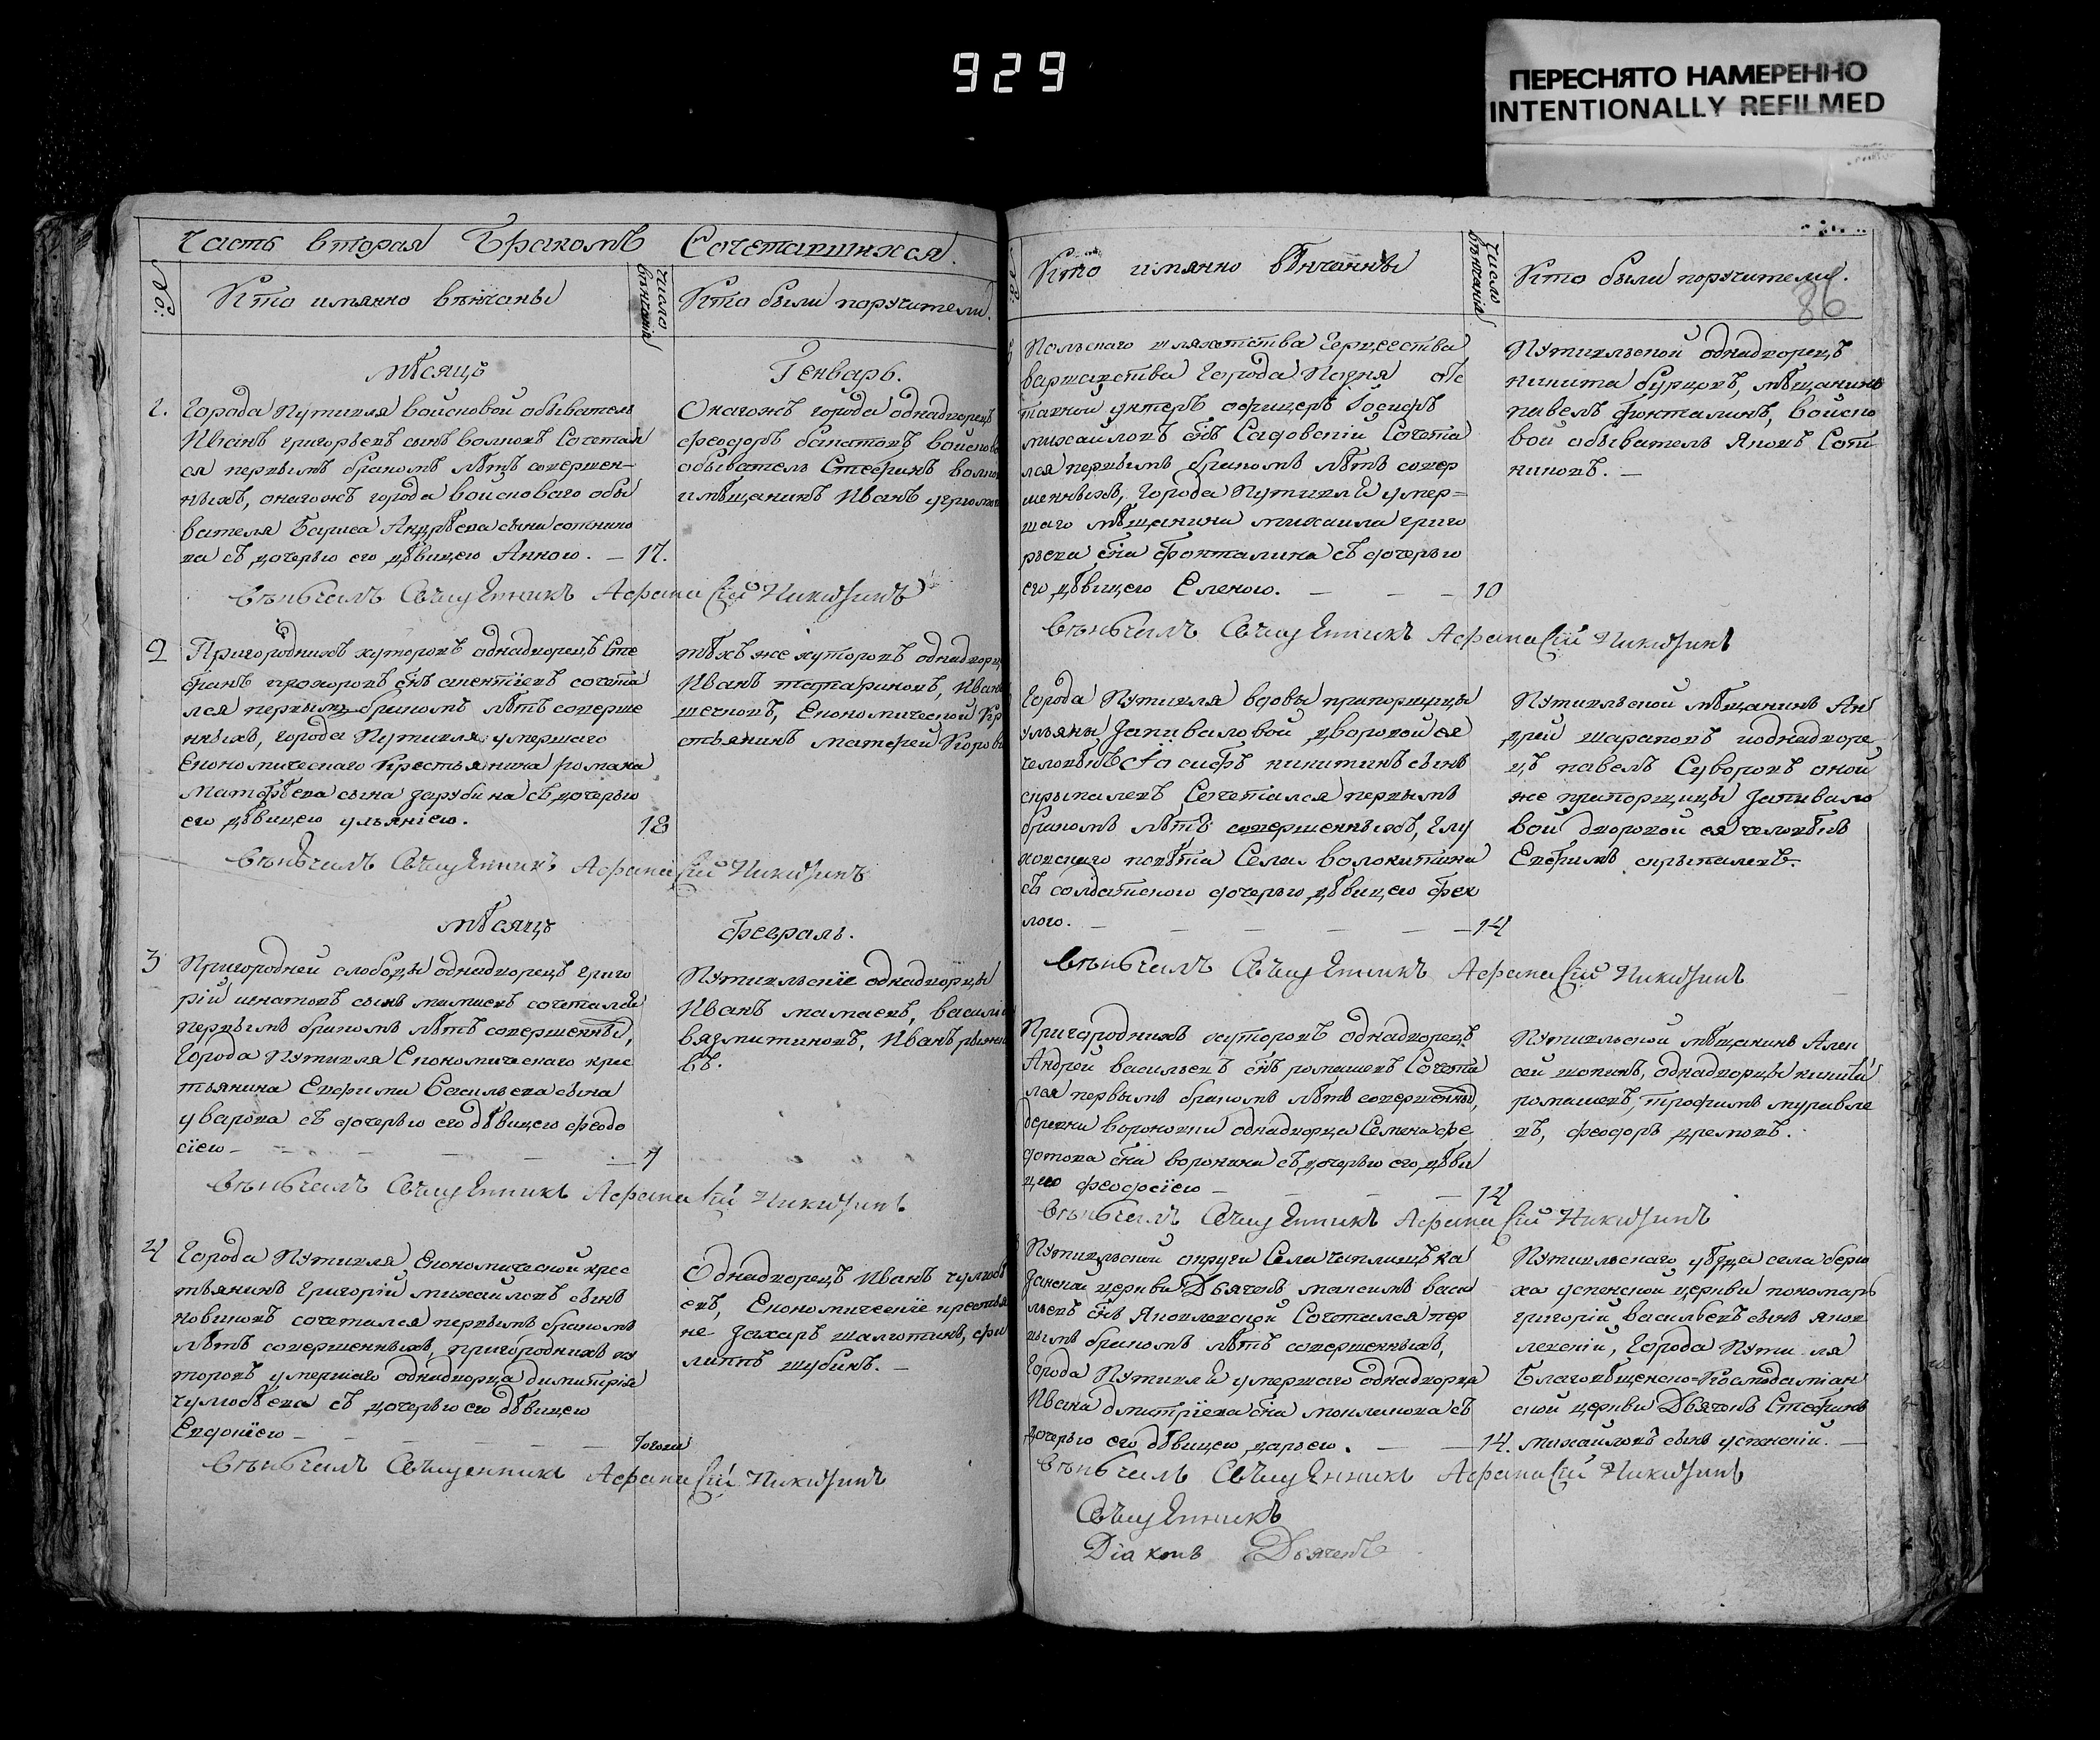 929
ПЕРЕСНЯТО НАМЕРЕННО
INTENTIONALLY REFILMED
Часть вторая Бракомъ Сочетавшихся.
№:
Кто имянно венчаны
число венчания
Кто были поручители.
мѣсяцъ Генварь.
1. Города Путивля войсковой обыватель
Иванъ григорьевъ сынъ волковъ Сочетал
ся первымъ бракомъ лѣтъ совершен-
ныхъ, онагожъ города войскового обы
вателя Бориса Андрѣева сына сотнико
ва съ дочерью его дѣвицею Анною. — 17.
Онагожъ города однадворецъ
феодоръ войсков
обыватель Стефанъ волко
и мѣщанинъ Иванъ
вѣнчалъ Священникъ Афанасий Никитинъ
2 Пригороднихъ хуторовъ однадворецъ Сте
фанъ прохоровъ снъ сочета
лся первымъ бракомъ лѣтъ соверше
нныхъ, города Путивля умершаго
Економическаго Крестьянина романа
Матфѣева сына зарубина съ дочерью
его дѣвицею ульяніею. 18
тѣхъ же хуторовъ однадворц
Иванъ татариновъ, Иван
Економической Кр
стьянинъ матфей
вѣнчалъ Священникъ Афанасий Никитинъ
мѣсяцъ февраль.
3 Пригородней слободы однадворецъ григо
рій игнатовъ сынъ мамаевъ сочетался
первымъ бракомъ лѣтъ совершенны,
Города Путивля Економическаго крес
тьянина Евфима Васильева сына
уварова съ дочерью его дѣвицею феодо
сіею — 7
Путивльскіе однадворцы
Иванъ мамаевъ, васили
вязмитиновъ, Иванъ рыжи
въ.
вѣнчалъ Священникъ Афанасий Никитинъ
4 Города Путивля Економической крес
тьянинъ Григорій михайловъ сынъ
новиковъ сочетался первымъ бракомъ
лѣтъ совершенныхъ, пригороднихъ ху
торовъ умершаго однадворца димитрія
съ дочерью его дѣвицею
Евдокіею —
Однадворецъ Иванъ
евъ, Економическіе крестья
не Захаръ шалготинъ, фи
липпъ шубинъ. —
вѣнчалъ Священникъ Афанасий Никитинъ
Кто имянно вѣнчанны
Число венчания
Кто были поручители.
86
Польскаго шляхетства герцества
варшавства города отс
тавной унтеръ офицеръ Іосифъ
михайловъ снъ Садовскій Сочета
лся первымъ бракомъ лѣтъ совер
шенныхъ, города Путивля умер=
шаго мѣщанина михаила григо
рьева сна фокталина съ дочерью
его дѣвицею Еленою. — 10
Путивльской однадворецъ
никита бурцовъ, мѣщанинъ
павелъ фокталинъ, войско
вой обыватель Яковъ Сот
никовъ. —
вѣнчалъ Священникъ Афанасий Никитинъ
Города Путивля вдовы прапорщицы
ульяны Запиваловой дворовой ея
человѣкъ Іосифъ никитинъ сынъ
скрыпалевъ Сочетался первымъ
бракомъ лѣтъ совершенныхъ, глу
ховскаго повѣта Села волокитина
съ солдатскою дочерью дѣвицею фек
лою. — 14
Путивльской мѣщанинъ Ан
дрей шараповъ и однадворе
цъ павелъ Суворовъ оной
же прапорщицы Запивало
вой дворовой ея человѣкъ
Евфимъ скрыпалевъ.
вѣнчалъ Священникъ Афанасий Никитинъ
Пригороднихъ хуторовъ однадворецъ
Андрей васильевъ снъ ромашевъ Сочета
лся первымъ бракомъ лѣтъ совершенны,
деревни вороновки однадворца Семена фе
дотова сна воронина съ дочерью его дѣви
цею феодосіею — 14
Путивльской мѣщанинъ Алек
сей шопинъ, однадворцы никита
ромашевъ, Трофимъ муравле
въ, феодоръ дремовъ.
вѣнчалъ Священникъ Афанасий Никитинъ
Путивльской округи Села чаплищъ ка
занской церкви Дьячокъ максимъ васи
льевъ снъ Яковлевской Сочетался пер
вымъ бракомъ лѣтъ совершенныхъ,
города Путивля умершаго однадворца
Ивана дмитріева сна моклокова съ
дочерью его дѣвицею дарьею. — 14.
Путивльскаго уѣзда села берю
ха успенской церкви пономарь
григорій васильевъ сынъ Яков
левскій, города Путивля
Благовѣщенско-Космодаміан
ской церкви Дьячокъ Стефанъ
михайловъ сынъ успенскій. —
вѣнчалъ Священникъ Афанасий Никитинъ
Священникъ
Діаконъ Дьячекъ